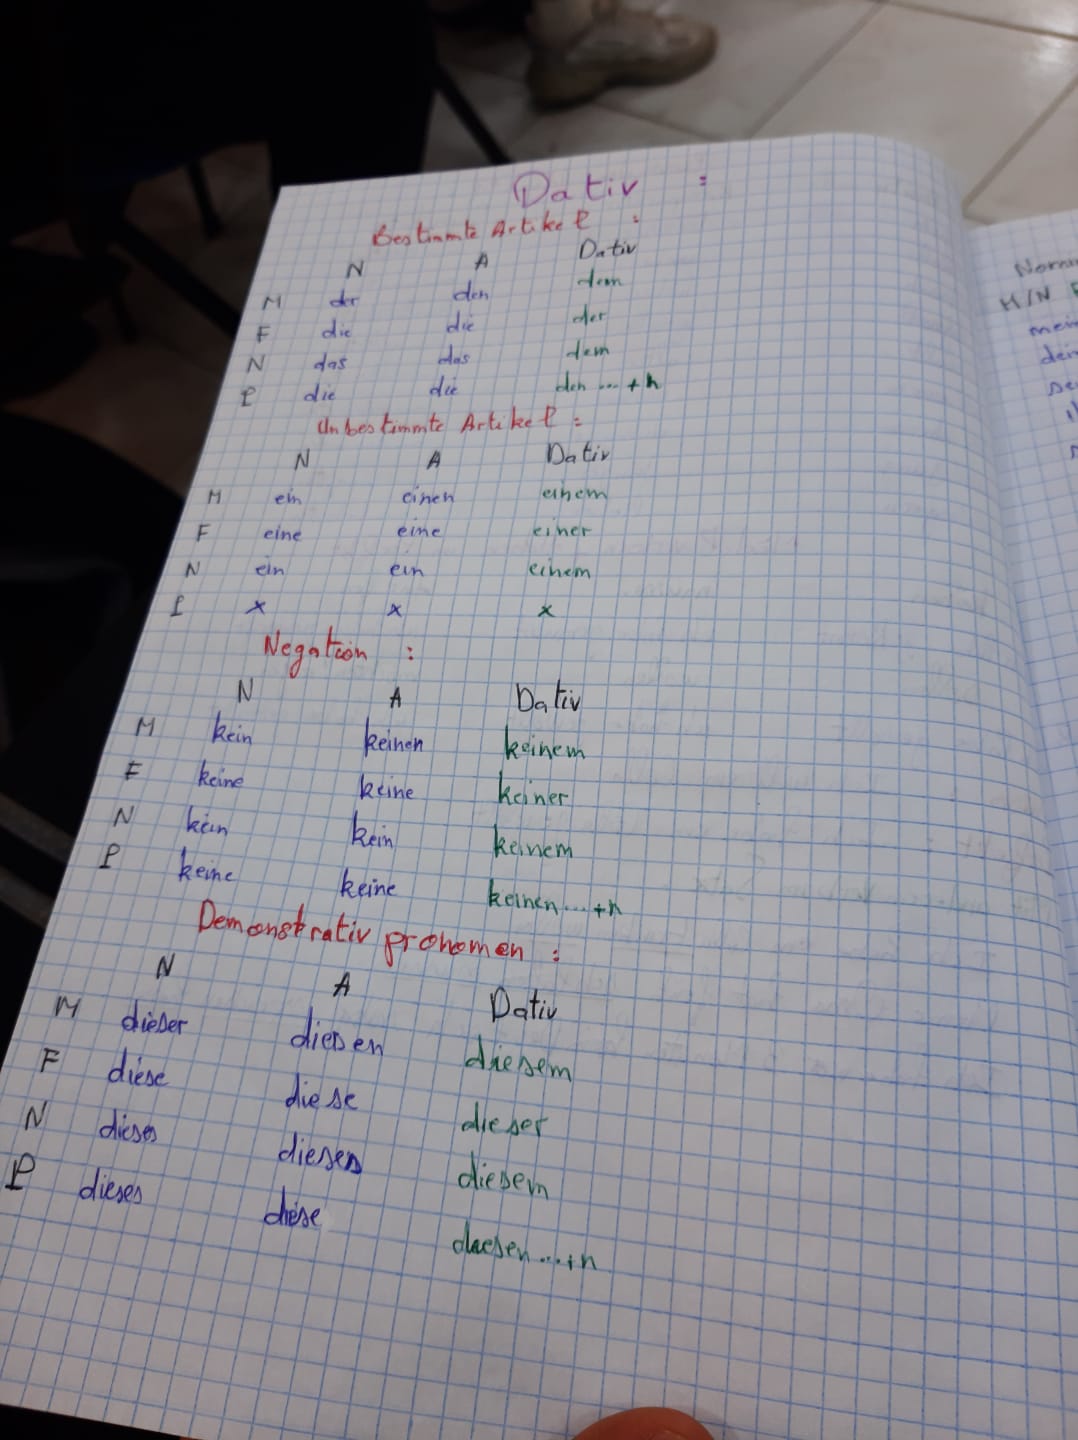 Dativ :
Bestimmte Artikel :
N A Dativ
M der den dem
F die die der
N das das dem
P die die den ... +n
Unbestimmte Artikel :
N A Dativ
M ein einen einem
F eine eine einer
N ein ein einem
P x x x
Negation :
N A Dativ
M kein keinen keinem
F keine keine keiner
N kein kein keinem
P keine keine keinen ... +n
Demonstrativ pronomen :
N A Dativ
M dieser diesen diesem
F diese diese dieser
N dieses dieses diesem
P dieses diese diesen ... +n
M/N F